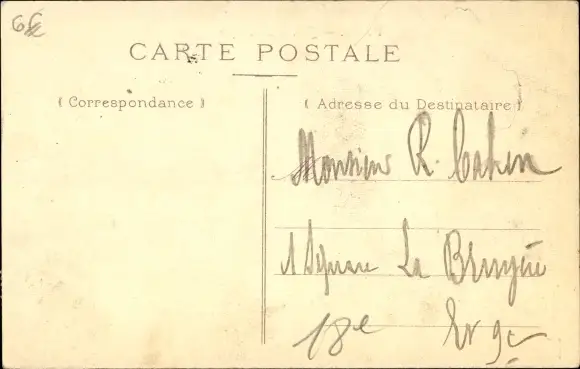 CARTE POSTALE
( Correspondance )
( Adresse du Destinataire )
Monsieur R. Cahen
1 Square La Bruyère
18e